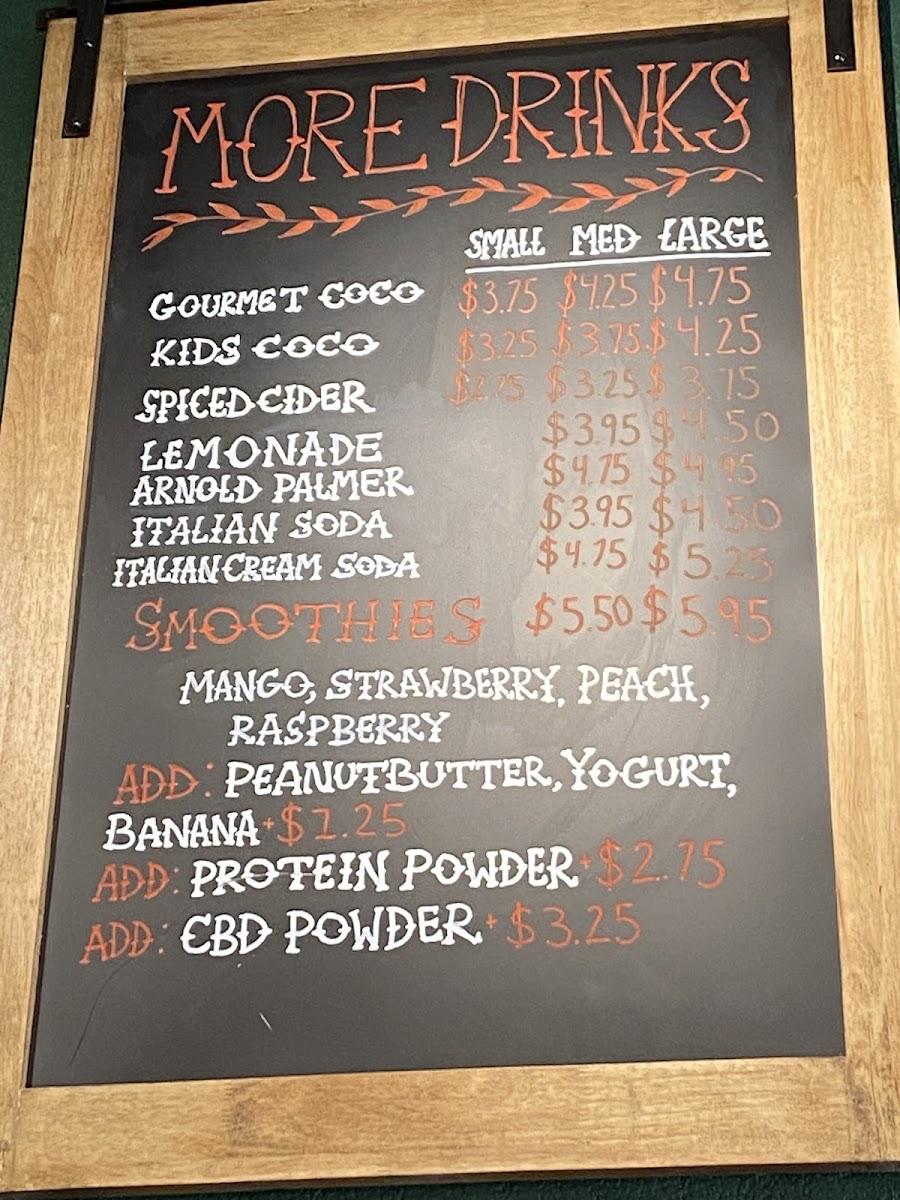 MORE DRINKS
SMALL MED LARGE
GOURMET COCO $3.75 $4.25 $4.75
KIDS COCO $3.25 $3.75 $4.25
SPICED CIDER $2.75 $3.25 $3.75
LEMONADE $3.95 $4.50
ARNOLD PALMER $4.75 $4.95
ITALIAN SODA $3.95 $4.50
ITALIAN CREAM SODA $4.75 $5.25
SMOOTHIES $5.50 $5.95
MANGO, STRAWBERRY, PEACH,
RASPBERRY
ADD: PEANUTBUTTER, YOGURT,
BANANA +$1.25
ADD: PROTEIN POWDER +$2.75
ADD: CBD POWDER +$3.25